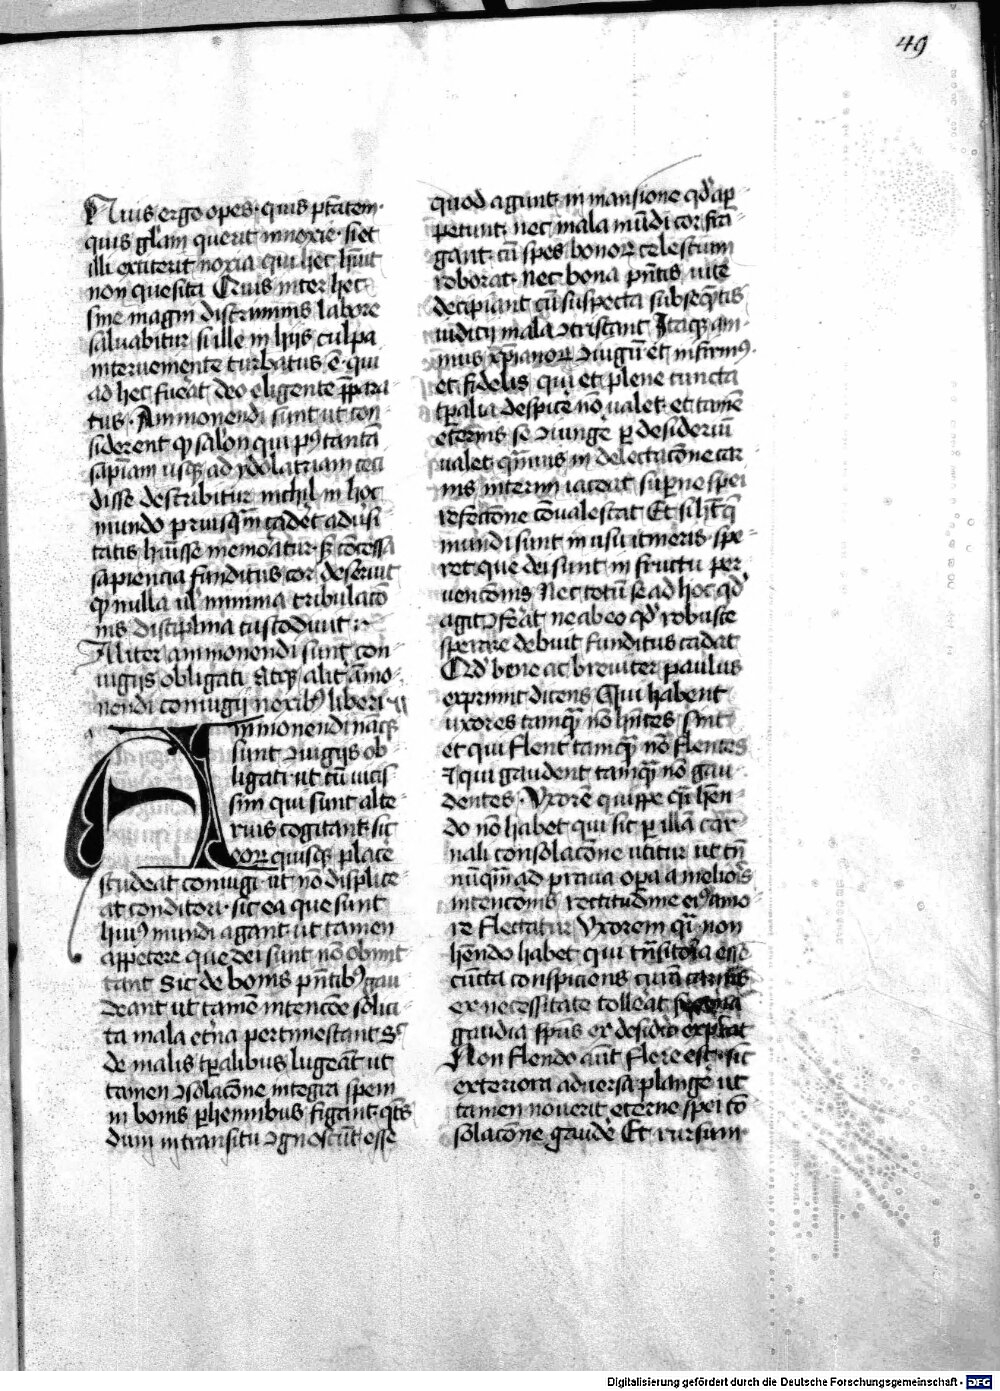 49
Quis ergo opes· quis ptātem·
quis gl'am querit innoxie· si et
illi extiterit noxia qui hec h̄uit
non quesita Quis inter hec
sine magni discriminis labore
saluabitur si ille in hijs culpa
interueniente turbatus ē· qui
ad hec fuerat deo eligente p̄para
tus· Ammonendi sunt ut con
siderent ꝙ salon qui p9 tantā
sapīam usqꝫ ad ydolatriam ceci
disse describitur nichil in hoc
mundo priusqm̄ caderet adūsi
tatis h̄uisse memoratur· sꝫ cōcessa
sapiencia funditus cor deseruit
ꝙ nulla ul' minima tribulacō
nis disciplina custodiuit
Aliter ammonendi sunt con
iugijs obligati Atqꝫ alit' āmo
nendi coniugij nexibꝫ liberi
Ammonendi nāqꝫ
sunt ꝯiugijs ob
ligati· ut cū vicis
sim qui sunt alte
rius cogitant· sic
eoꝝ quisqꝫ placē
studeat coniugi· ut nō displice
at conditori· sic ea que sunt
hui9 mundi agant· ut tamen
appetere que dei sunt nō obmit
tant Sic de bonis pn̄tibꝫ gau
deant ut tamē intencōe solici
ta mala etn̄a pertimescant S'
de malis tp̄alibus lugeāt ut
tamen ꝯsolacōne integra spem
in bonis p̱hennibus figant· q̄ts
dum in transitu ꝯgnoscūt esse
quod agunt· in mansione qd' ap
petunt· nec mala mūdi cor frā
gant· cū spes bonoꝝ celestium
roborat· nec bona pn̄tis vite
decipiant cū suspecta subseq̄ntis
iudicij mala ꝯtristant Itaqꝫ ani
mus xp̄ianoꝝ ꝯiugū et infirm9
et fidelis qui et plene cuncta
tp̄alia despicē nō ualet· et tamē
eternis se ꝯiungē p̱ desideriū
ualet· quāuis in delectacōne car
nis interim iaceat sup̱ne spei
refectione cōualescat Et si h̄t q̄
mundi sunt in usu itineris· spe
ret que dei sunt in fructu per
uencōnis Nec totū se ad hoc qd'
agit ꝯferat ne ab eo qd' robuste
sperare debuit funditus cadat
Qd' bene ac breuiter paulus
exprimit dicens Qui habent
uxores tamqꝫ nō h̄ntes sint
et qui flent tamqꝫ nō flentes
⁊ qui gaudent tamqꝫ nō gau
dentes· Vxorē quippe q̄si h̄en
do nō habet qui sic p̱ illā car
nali consolacōne utitur ut tn̄
nūqꝫ ad praua op̱a a melioris
intencōnis rectitudine ei9 amo
re flectatur Vxorem q̄si non
h̄endo habet qui trn̄sitoria esse
cūcta conspiciens curā carnis
ex necessitate tolleat
gaudia sp̄us ex desid'io expectat
Non flendo aūt flere est· sic
exteriora aduersa plangē ut
tamen nouerit eterne spei cō
solacōne gaudē Et rursum
Digitalisierung gefördert durch die Deutsche Forschungsgemeinschaft - DFG